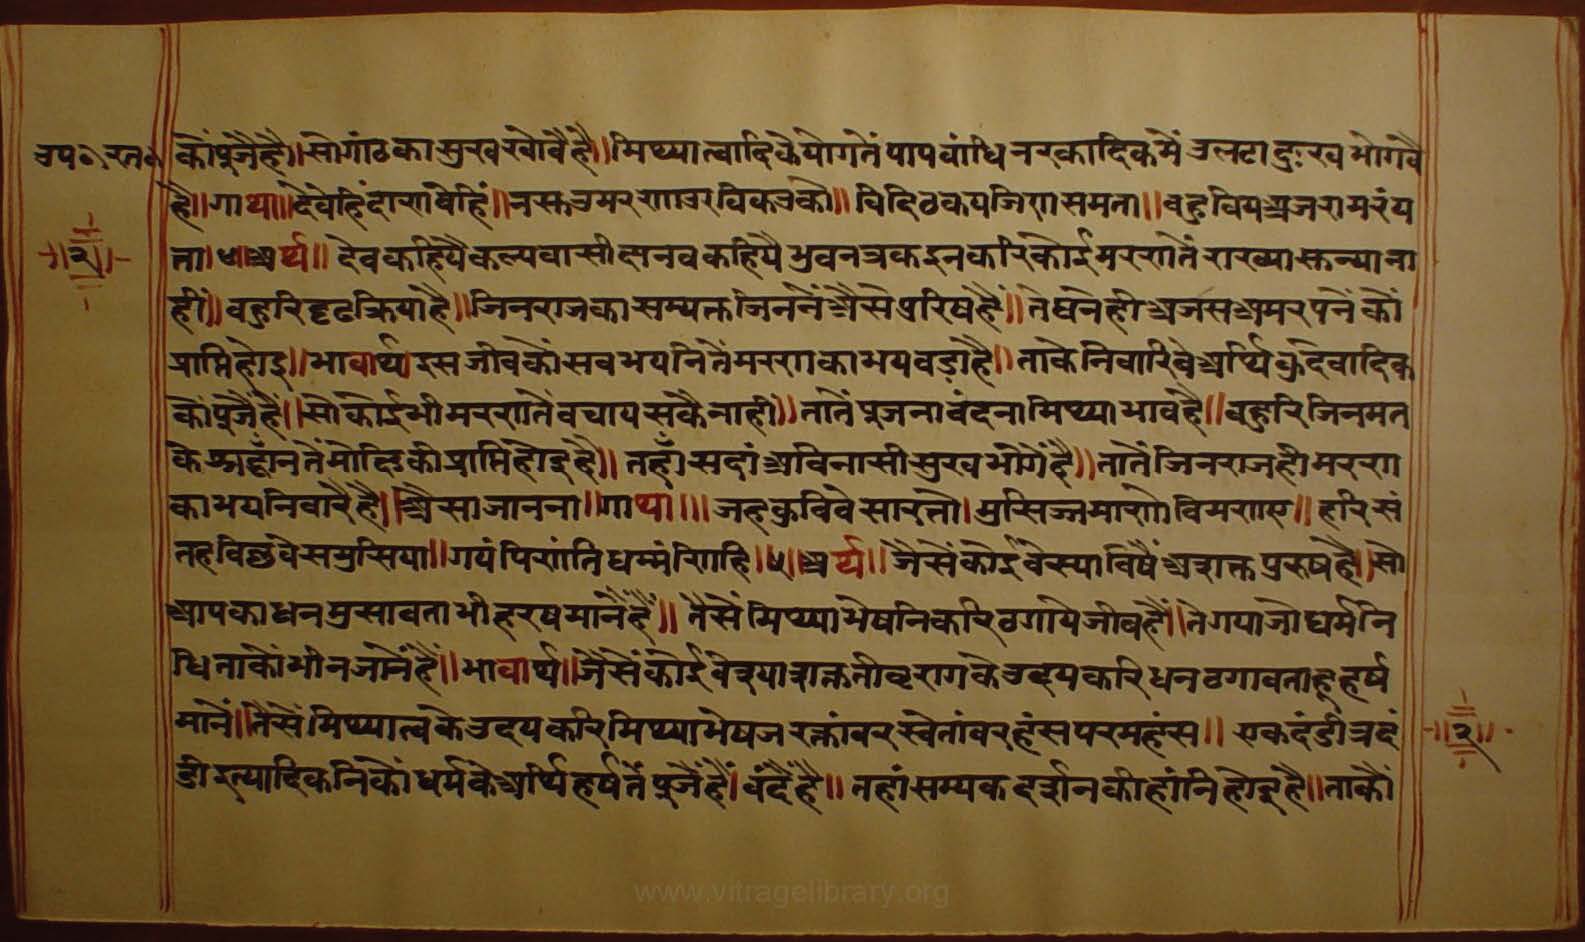 उप॰र॰त्न॰
कों पूजै है॥ सो गांठ का सुख खोवै है॥ मिथ्यात्वादि के योगतें पाप बांधि नरकादिक में उलटा दुःख भोगवै
है॥ गाथा॥ देवेहिं दाणवेहिं॥ न सुउ मरणाउ रविकउ को॥ वि दिठकय जिण समता॥ बहु विय अजरामरं प
त्ता॥ ४॥ अर्थ॥ देव कहिये कल्पवासी दानव कहिये भुवनत्रक इनकरि कोई मरणतें राख्या सुन्या ना
हीं॥ बहुरि दृढ किया है॥ जिनराज का सम्यक्त जिननें अैसे पुरिष हैं॥ ते घने ही अजर अमरपनें कों
प्राप्ति होइ॥ भावार्थ इस जीव कों सब भयनितें मरण का भय बड़ा है॥ ताके निवारिवे अर्थि कुदेवादिक
कों पूजै हैं॥ सो कोई भी मरणतें बचाय सकै नाही॥ तातें पूजना वंदना मिथ्या भाव है॥ बहुरि जिनमत
के श्रद्धानतें मोक्षि की प्राप्ति होइ है॥ तहाँ सदां अविनासी सुख भोगें है॥ तातें जिनराज ही मरण
का भय निवारै है॥ अैसा जानना॥ गाथा॥॥ जह कुवि वेसारत्तो। मुसिज्जमाणो वि मणए॥ हरिसं
तह विछवेस मुसिया॥ गयं पि ण मुणंति धम्मंणिहि॥ ५॥ अर्थ॥ जैसें कोई वेस्या विषैं अशक्त पुरुष है॥ सो
आपका धन मुसावता भी हरष मानैं हैं॥ तैसें मिथ्याभेषनि करि ठगाये जीव हैं॥ ते गया जो धर्म नि
धि ताकों भी न जानें हैं॥ भावार्थ॥ जैसें कोई वेश्याशक्त तीव्र राग के उदय करि धन ठगावता हू हर्ष
मानें॥ तैसें मिथ्यात्व के उदय करि मिथ्याभेष ज रक्तांबर स्वेतांबर हंस परमहंस॥ एकदंडी त्रदं
डी इत्यादिकनि कों धर्म के अर्थि हर्षतें पूजैं हैं। वंदै हैं॥ तहां सम्यकदर्शन की हांनि होइ है॥ ताकों
॥२॥
॥२॥
www.vitragelibrary.org